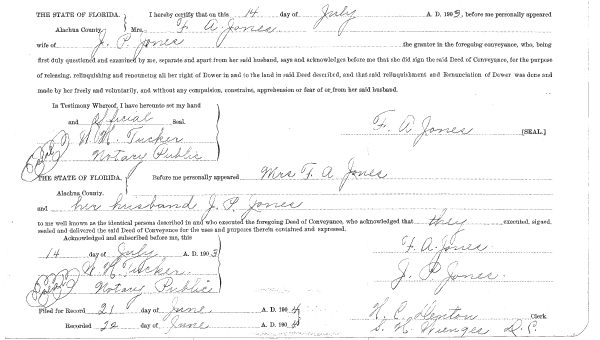 THE STATE OF FLORIDA. I hereby certify that on this 14 day of July A. D. 1903, before me personally appeared
Alachua County. Mrs. F. A. Jones
wife of J. P. Jones the grantor in the foregoing conveyance, who, being
first duly questioned and examined by me, separate and apart from her said husband, says and acknowledges before me that she did sign the said Deed of Conveyance, for the purpose
of releasing, relinquishing and renouncing all her right of Dower in and to the land in said Deed described, and that said relinquishment and Renunciation of Dower was done and
made by her freely and voluntarily, and without any compulsion, constraint, apprehension or fear of or from her said husband.
In Testimony Whereof, I have hereunto set my hand
and official Seal.
W. H. Tucker F. A Jones [SEAL.]
Seal Notary Public
THE STATE OF FLORIDA, Before me personally appeared Mrs F. A Jones
Alachua County.
and her husband J. P. Jones
to me well known as the identical persons described in and who executed the foregoing Deed of Conveyance, who acknowledged that they executed, signed,
sealed and delivered the said Deed of Conveyance for the uses and purposes therein contained and expressed.
Acknowledged and subscribed before me, this
14 day of July A. D. 1903 F. A. Jones
W. H. Tucker J. P. Jones
Seal Notary Public
Filed for Record 21 day of June A. D. 1904 H. C. Denton Clerk
Recorded 22 day of June A. D. 1904 S. H. Wienges D. C.